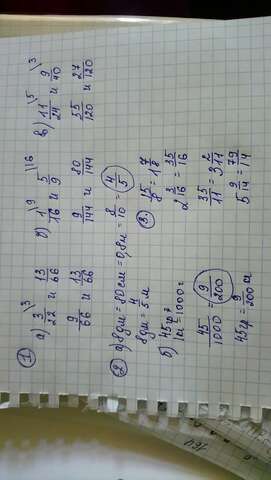 ① а) 3/22 \3 и 13/66 б) 1/16 \9 и 5/9 \16 в) 11/24 \5 и 9/40 \3
9/66 и 13/66 9/144 и 80/144 55/120 и 27/120
② а) 8дм = 80см = 0,8м = 8/10 = 4/5
8дм = 4/5 м
б) 45гр
= 1000г
45/1000 = 9/200
45гр = 9/200
③. 15/8 = 1 7/8
2 3/16 = 35/16
35/11 = 3 2/11
5 9/14 = 79/14